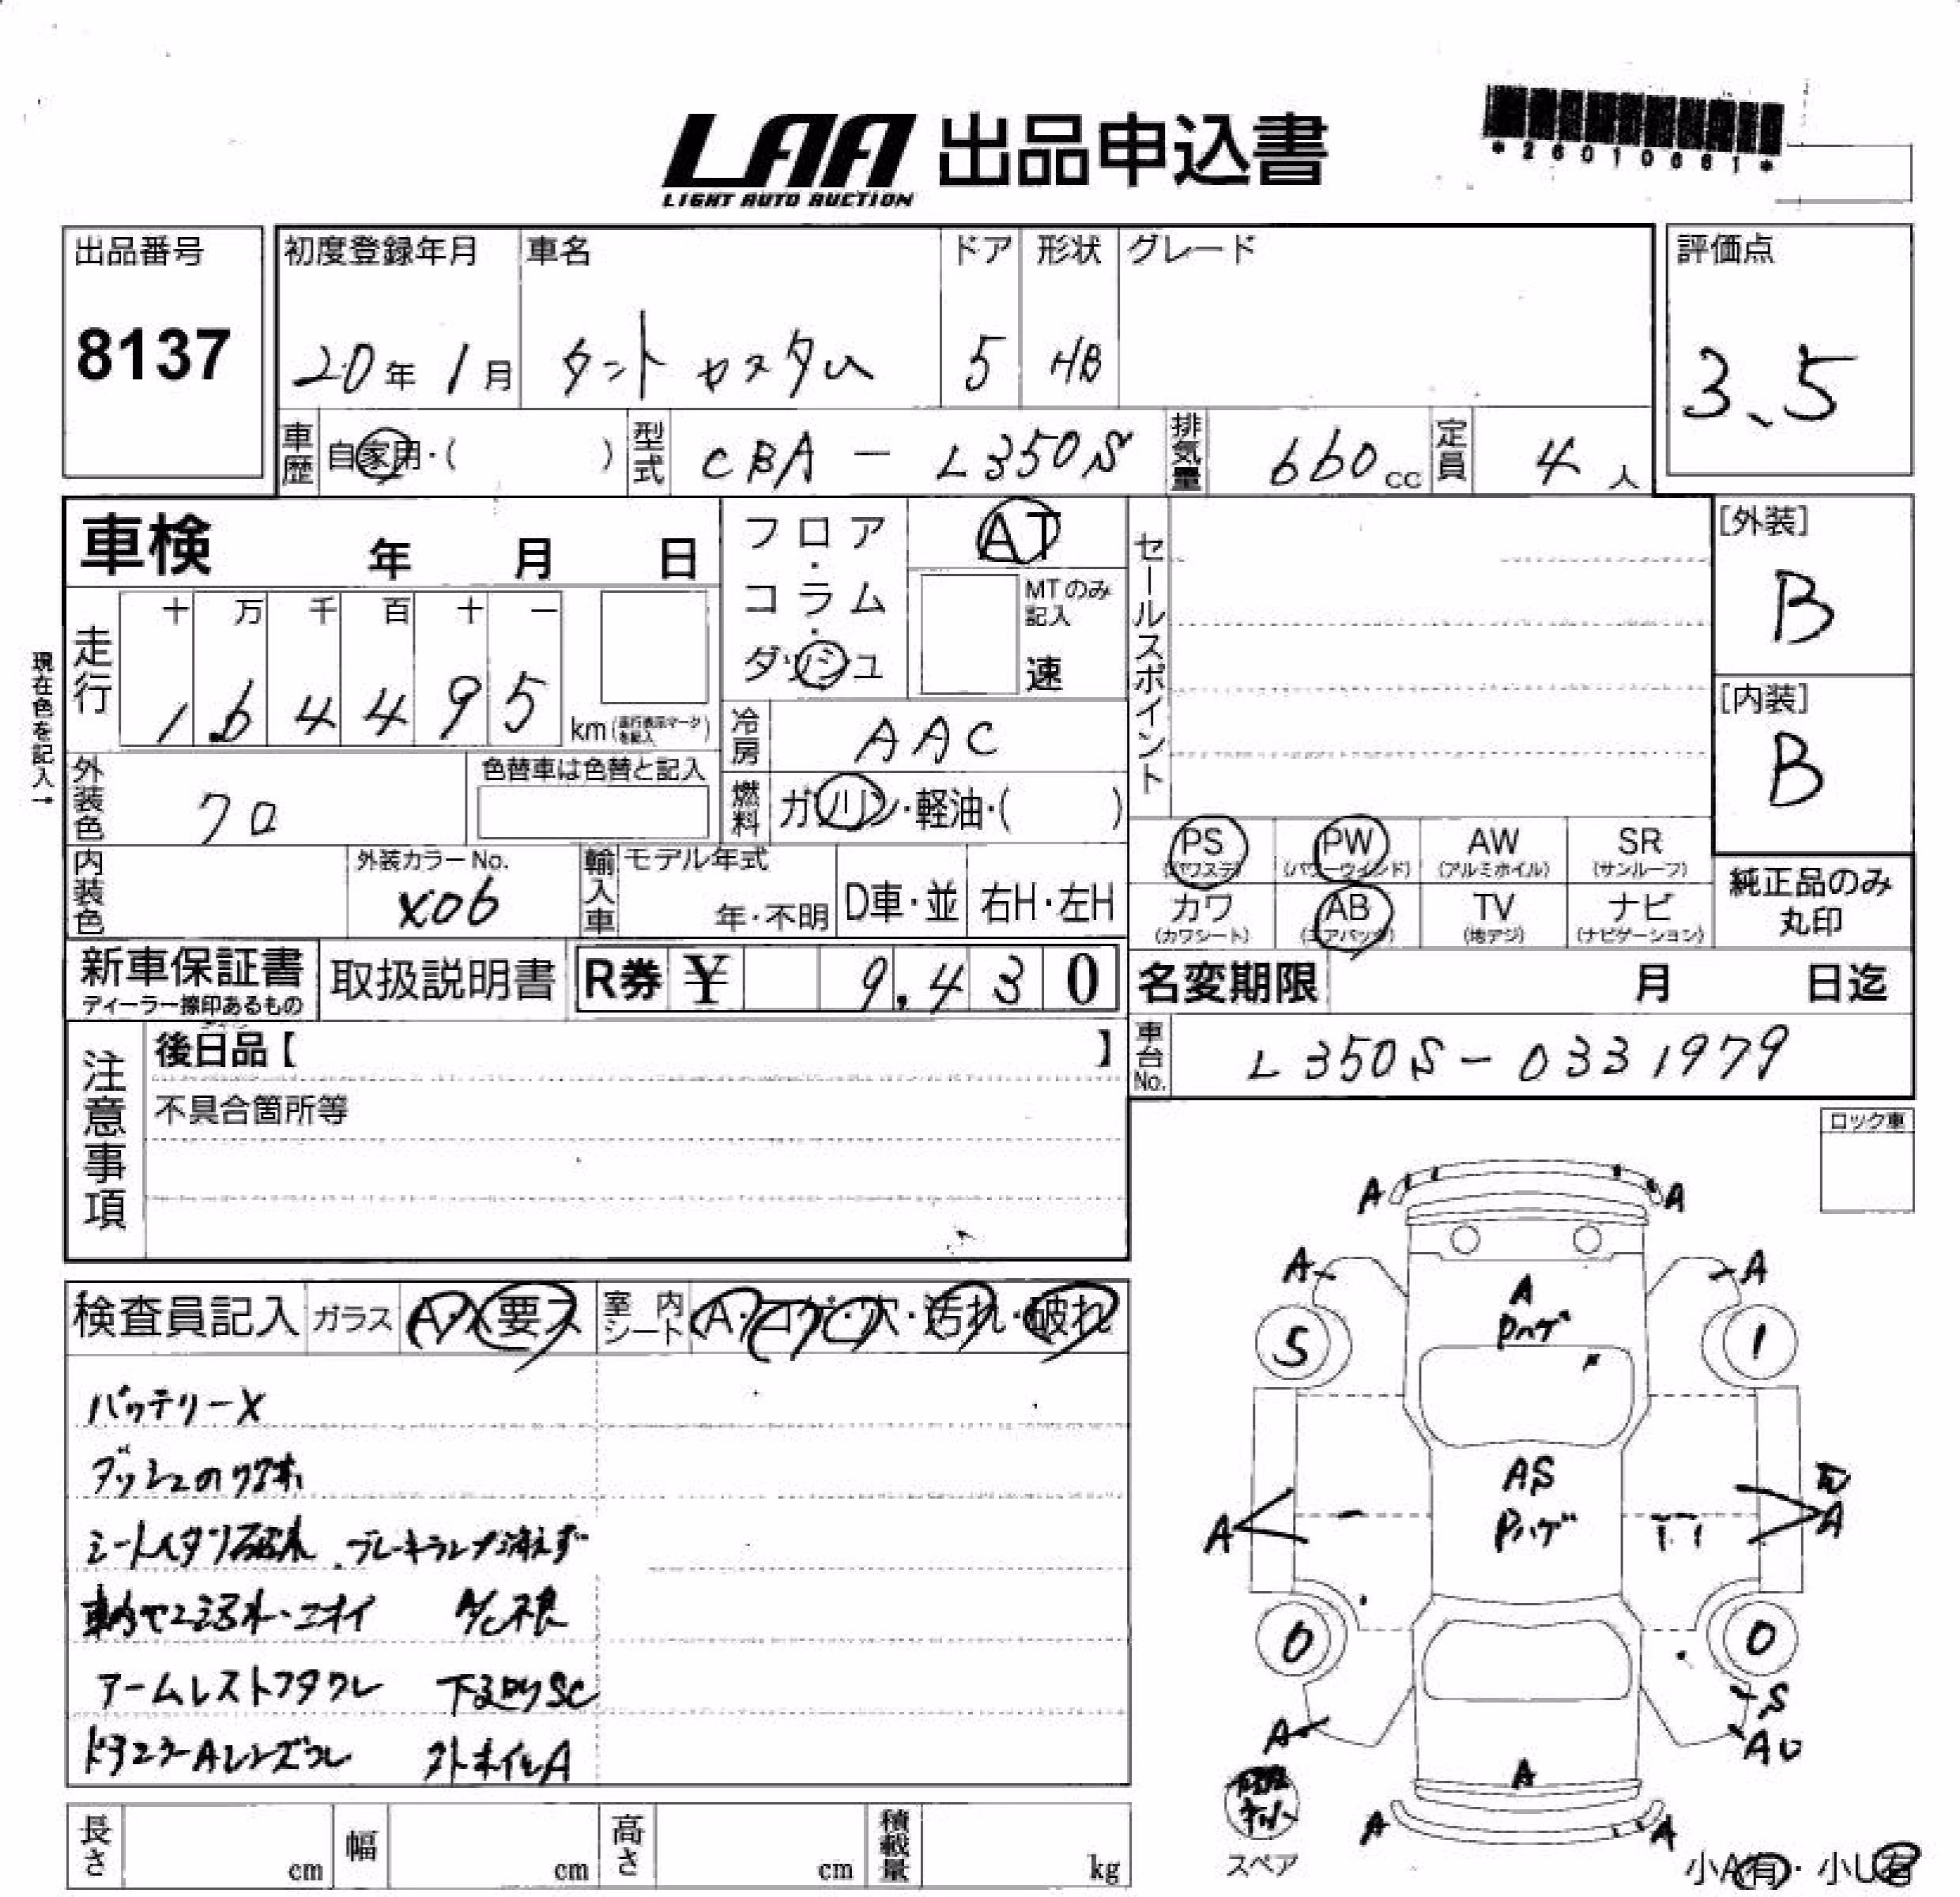 LAA 出品申込書
LIGHT AUTO AUCTION
*26010661*
出品番号 初度登録年月 車名 ドア 形状 グレード 評価点
8137 20年1月 タント カスタム 5 HB 3.5
車歴 自家用・( ) 型式 CBA - L350S 排気量 660cc 定員 4人
車検 年 月 日 フロア・コラム・ダッシュ AT MTのみ記入 速 セールスポイント [外装]
B
現在色を記入→ 走行 十 万 千 百 十 一
1.64495 km (走行表示マークを記入) 冷房 AAC [内装]
B
外装色 クロ 色替車は色替と記入 燃料 ガソリン・軽油・( )
PS (パワステ) PW (パワーウインド) AW (アルミホイル) SR (サンルーフ) 純正品のみ丸印
内装色 外装カラーNo. X06 輸入車 モデル年式 年・不明 D車・並 右H・左H カワ (カワシート) AB (エアバッグ) TV (地デジ) ナビ (ナビゲーション)
新車保証書 ディーラー捺印あるもの 取扱説明書 R券 ¥ 9,430 名変期限 月 日迄
注意事項 後日品【 】 車台No. L350S-0331979
不具合箇所等 ロック車
検査員記入 ガラス A・ 要ス 室内シート A・コゲ・穴・汚れ・破れ
バッテリーX
ダッシュのワレ
シートイタリ破れ ブレーキランプ消えず
車内ヤニ汚れ・ニオイ A/C不良
アームレストフタワレ 下廻りSC
ドアミラーAレンズワレ ストホイルA
A A
A A
A
Pハゲ
5 1
AS
Pハゲ
A A
0 0
S
A AU
A
A A
スペア 小A有・小U有
長さ cm 幅 cm 高さ cm 積載量 kg